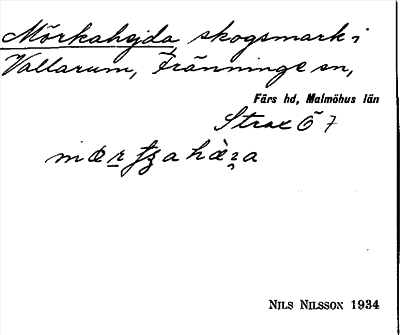 Mörkahejda, skogsmark i
Vallarum, Fränninge sn,
Färs hd, Malmöhus län
Strax Ö 7
NILS NILSSON 1934